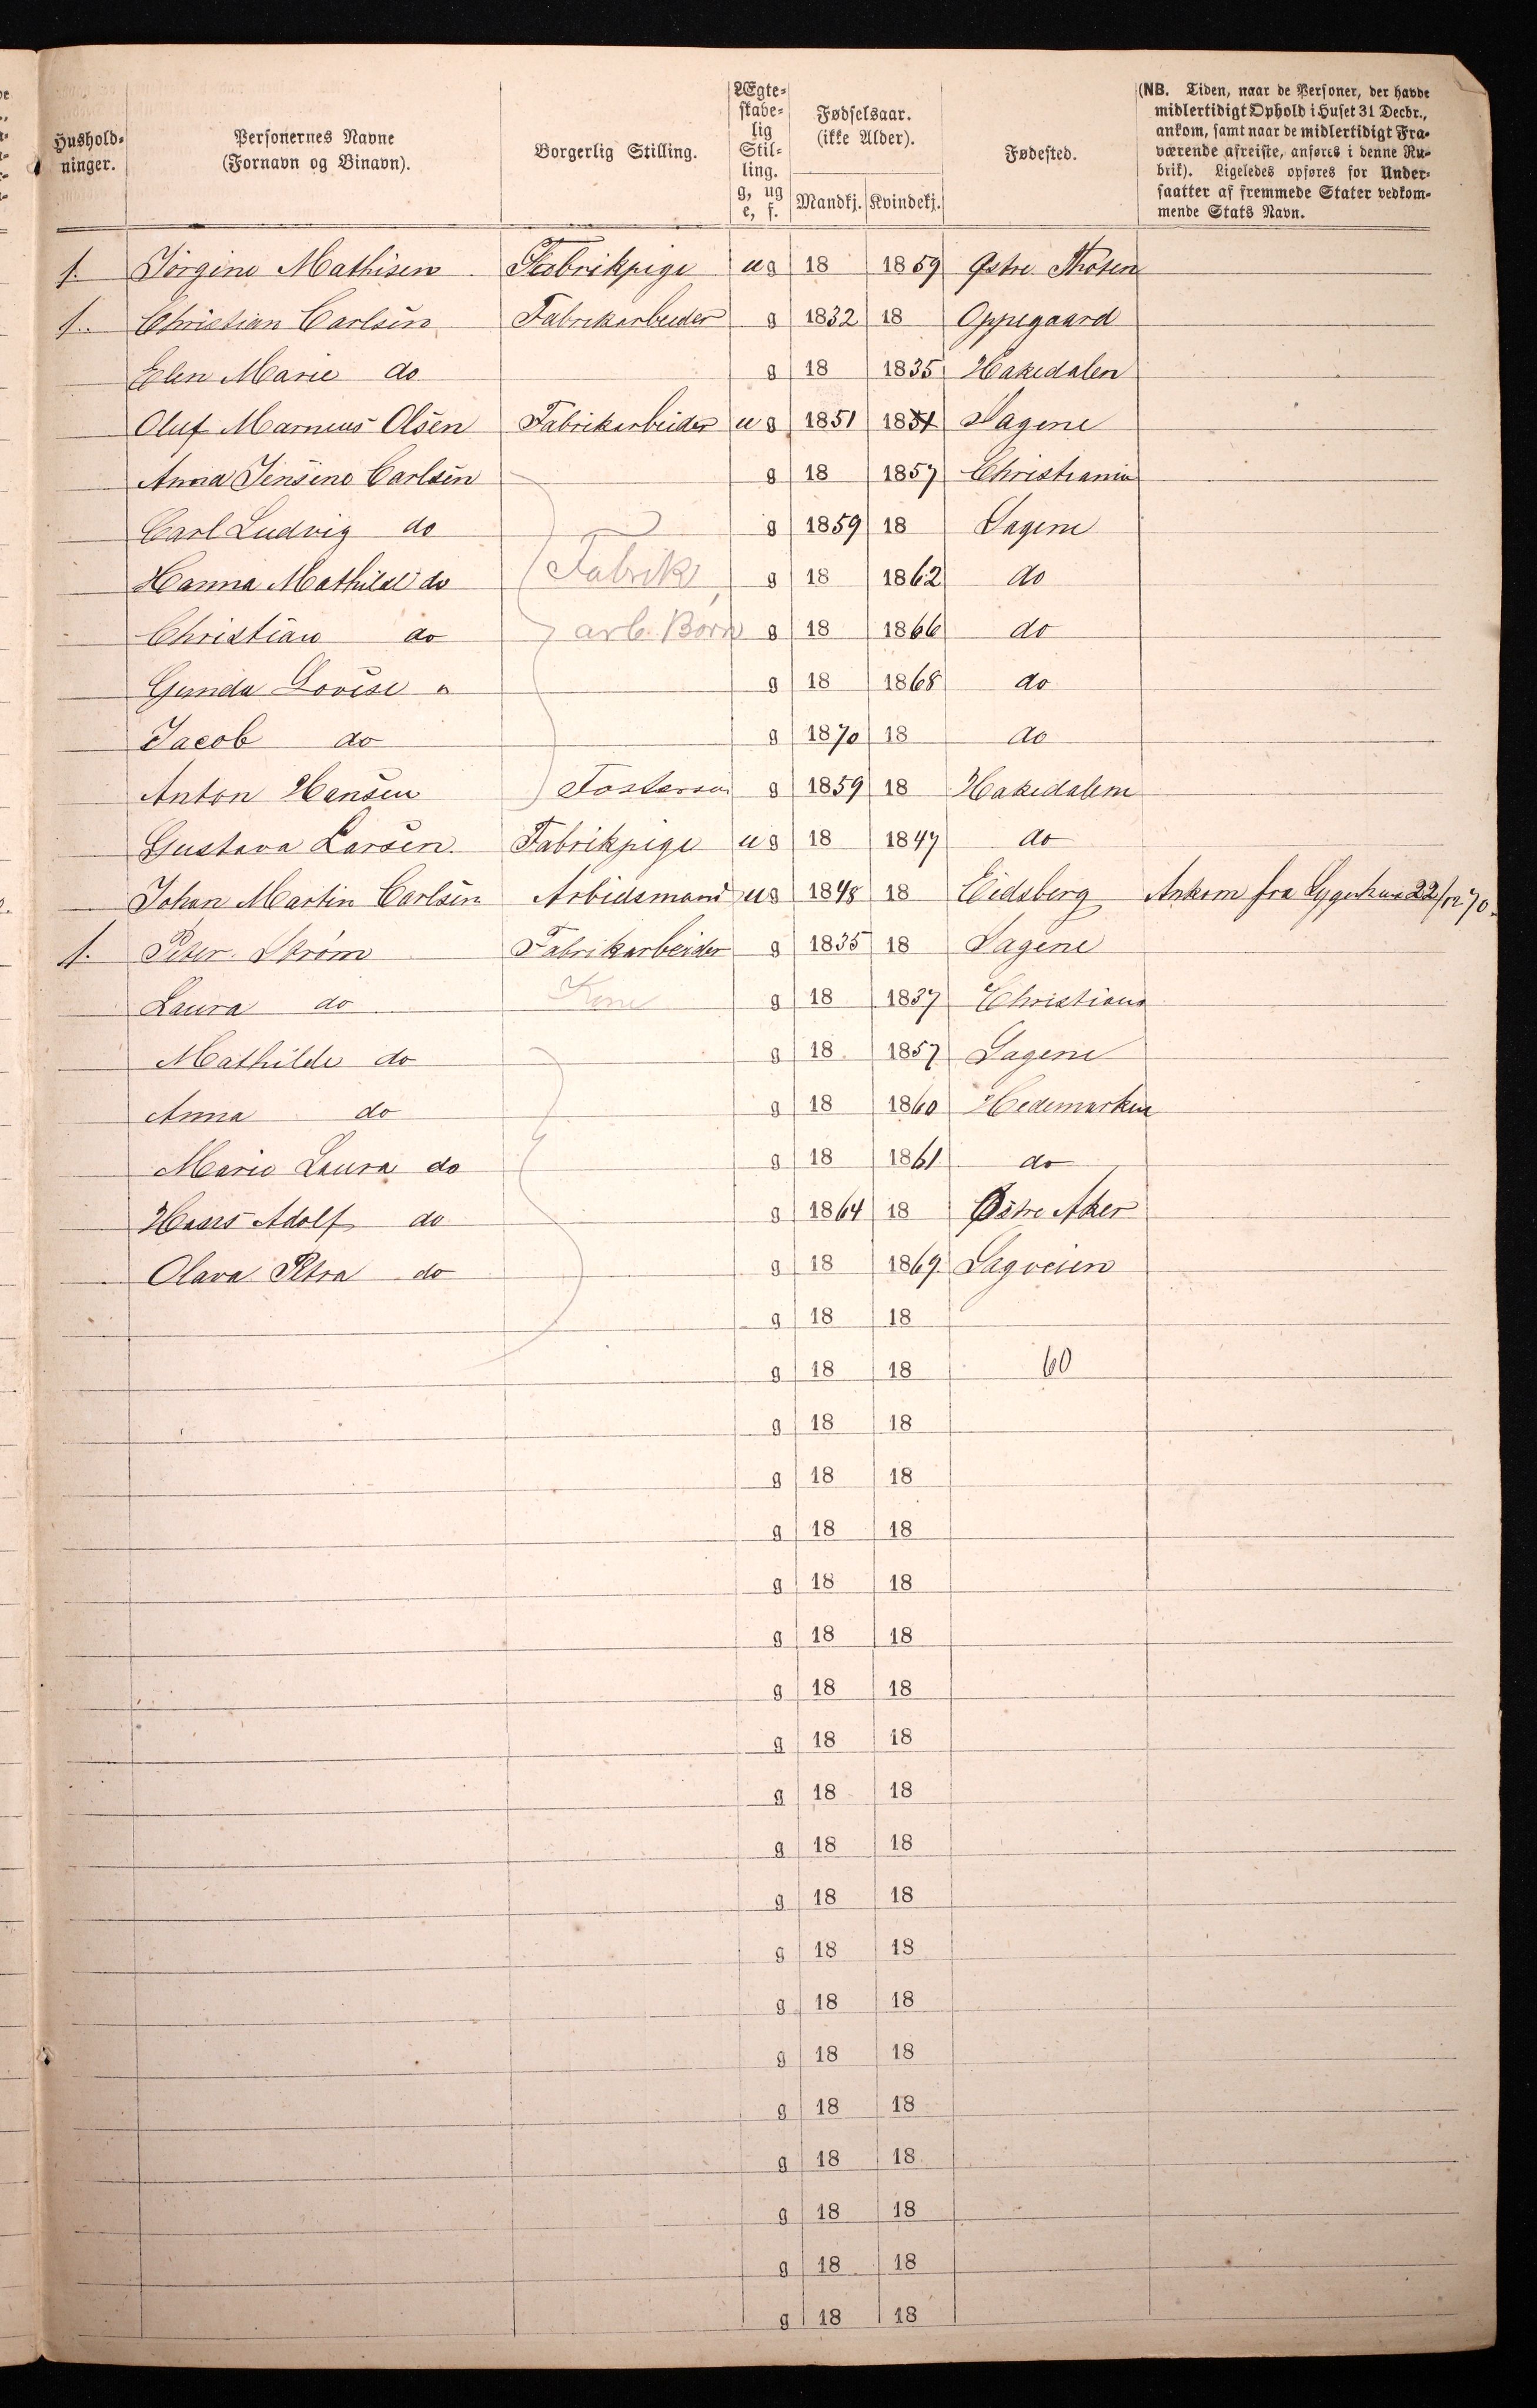 Hushold-
ninger.
Personernes Navne
(Fornavn og Binavn).
Borgerlig Stilling.
Ægte-
skabe-
lig
Stil-
ling.
g, ug
e, f.
Fødselsaar.
(ikke Alder).
Mandkj. Kvindekj.
Fødested.
(NB. Tiden, naar de Personer, der havde
midlertidigt Ophold i Huset 31 Decbr.,
ankom, samt naar de midlertidigt Fra-
værende afreiste, anføres i denne Ru-
brik). Ligeledes opføres for Under-
saatter af fremmede Stater vedkom-
mende Stats Navn.
1. Jörgine Mathisen Fabrikpige ug 18 1859 Østre Thoten
1. Christian Carlsen Fabrikarbeider g 1832 18 Oppegaard
Elen Marie do g 18 1835 Hakedalen
Oluf Marneus Olsen Fabrikarbeider ug 1851 1851 Sagene
Anna Jensine Carlsen g 18 1857 Christiania
Carl Ludvig do g 1859 18 Sagene
Hanna Mathilde do Fabrik g 18 1862 do
Christian do arb. Börn g 18 1866 do
Gunda Lovise " g 18 1868 do
Jacob do g 1870 18 do
Anton Hansen Fostersøn g 1859 18 Hakedalem
Gustava Larsen. Fabrikpige ug 18 1847 do
Johan Martin Carlsen Arbidsmand ug 1848 18 Eidsberg Ankom fra Sygehus 22/12 70.
1. Peter Strøm Fabrikarbeider g 1835 18 Sagene
Laura do Kone g 18 1837 Christiana
Mathilde do g 18 1857 Sagene
Anna do g 18 1860 Hedemarken
Marie Laura do g 18 1861 do
Hans Adolf do g 1864 18 Østre Aker
Olava Petra do g 18 1869 Sagveien
g 18 18
g 18 18 60
g 18 18
g 18 18
g 18 18
g 18 18
g 18 18
g 18 18
g 18 18
g 18 18
g 18 18
g 18 18
g 18 18
g 18 18
g 18 18
g 18 18
g 18 18
g 18 18
g 18 18
g 18 18